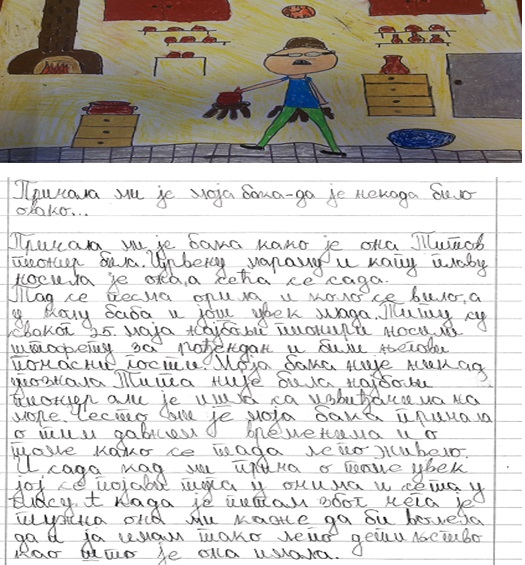 Причала ми је моја бака-да је некада било
овако...
Причала ми је бака како је она Титов
пионир била. Црвену мараму и капу плаву
носила је она, а сећа се сада.
Тад се песма орила и коло се вило, а
у колу баба и још увек млада. Титу су
сваког 25. маја најбољи пионири носили
штафету за рођендан и били његови
почасни гости. Моја бака није никад
упознала Тита није била најбољи
пионир али је ишла са извиђачима на
море. Често ми је моја бака причала
о тим давним временима и о
томе како се тада лепо живело.
И сада кад ми прича о томе увек
јој се појави сјај у очима и сета у
гласу. А када је питам због чега је
тужна она ми каже да би волела
да и ја имам тако лепо детињство
као што је она имала.